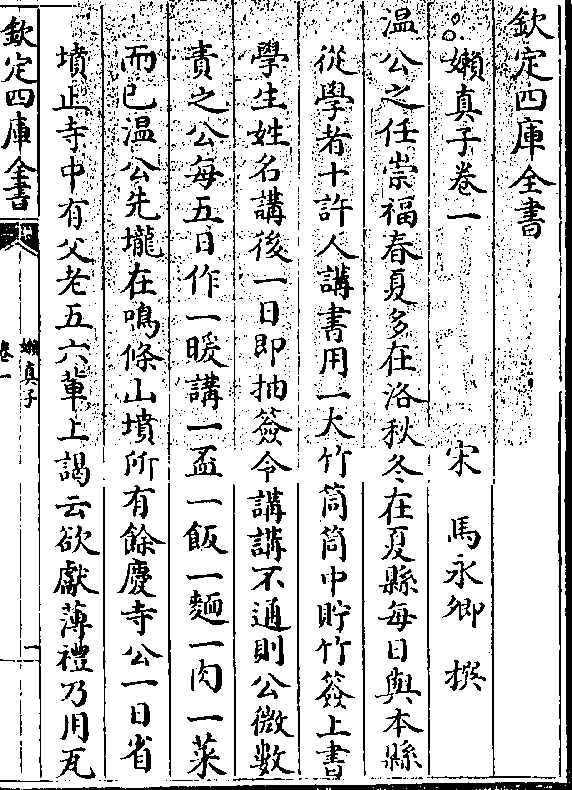 欽定四庫全書
嬾真子卷一
宋 馬永卿 撰
温公之任崇福春夏多在洛秋冬在夏縣每日與本縣
從學者十許人講書用一大竹筒筒中貯竹簽上書
學生姓名講後一日即抽簽令講講不通則公微數
責之公每五日作一暖講一盃一飯一麵一肉一菜
而已温公先壠在鳴條山墳所有餘慶寺公一日省
墳止寺中有父老五六輩上謁云欲獻薄禮乃用瓦
欽定四庫全書
嬾真子
卷一
一